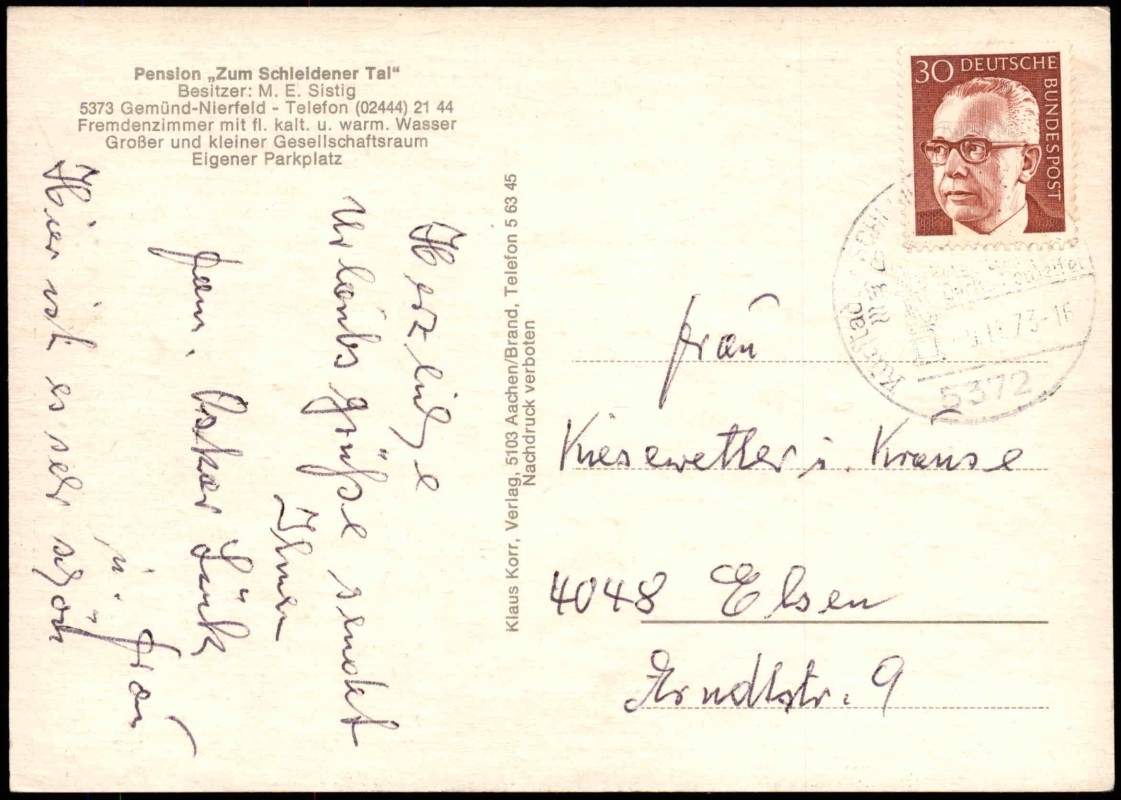 Pension „Zum Schleidener Tal“
Besitzer: M. E. Sistig
5373 Gemünd-Nierfeld - Telefon (02444) 21 44
Fremdenzimmer mit fl. kalt. u. warm. Wasser
Großer und kleiner Gesellschaftsraum
Eigener Parkplatz
Herzliche
Urlaubsgrüße sendet
Ihnen
Fam. Oskar Lück
u. Frau
Hier ist es ser schön
Klaus Korr, Verlag, 5103 Aachen/Brand, Telefon 5 63 45
Nachdruck verboten
30 DEUTSCHE
BUNDESPOST
73-16
5372
Frau
Kiesewetter u. Krause
4048 Elsen
Arndtstr. 9